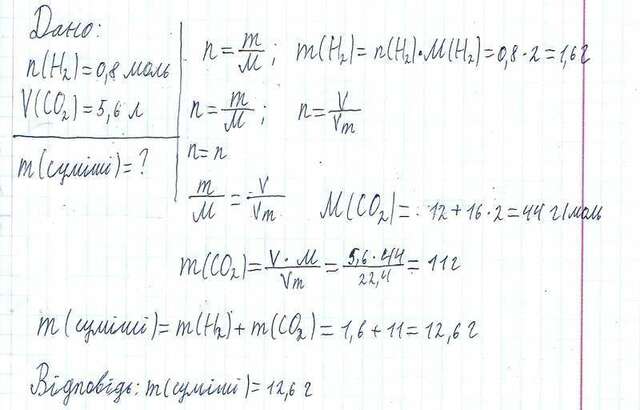 Дано:
n(H₂)=0,8 моль
V(CO₂)=5,6 л
m(суміші)=?
n=m/M; m(H₂)=n(H₂)·M(H₂)=0,8·2=1,6 г
n=m/M; n=V/Vm
n=n
m/M=V/Vm M(CO₂)=12+16·2=44 г/моль
m(CO₂)=V·M/Vm=5,6·44/22,4=11 г
m(суміші)=m(H₂)+m(CO₂)=1,6+11=12,6 г
Відповідь: m(суміші)=12,6 г